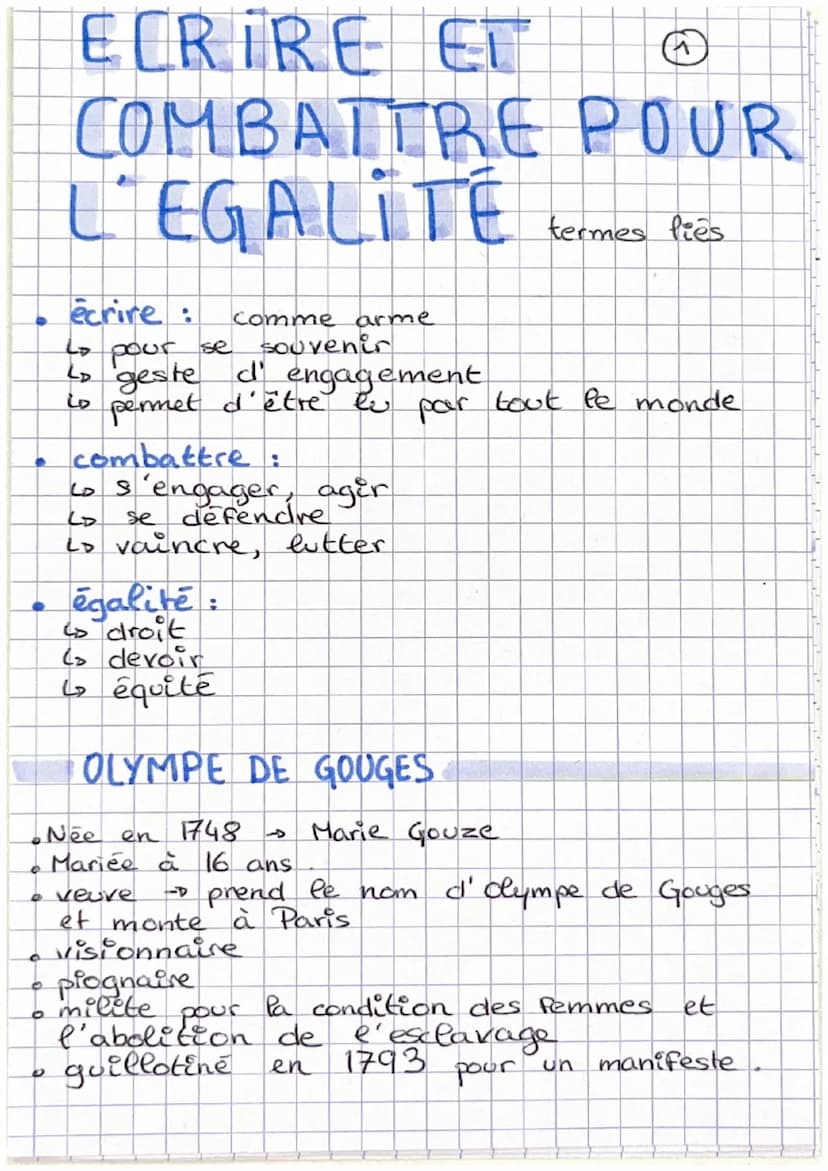 ECRIRE ET ①
COMBATTRE POUR
L'EGALITÉ termes liés
• écrire : comme arme
↳ pour se souvenir
↳ geste d'engagement
↳ permet d'être lu par tout le monde
• combattre :
↳ s'engager, agir
↳ se défendre
↳ vaincre, lutter
• égalité :
↳ droit
↳ devoir
↳ équité
OLYMPE DE GOUGES
• Née en 1748 → Marie Gouze
• Mariée à 16 ans.
• veuve → prend le nom d'Olympe de Gouges
et monte à Paris
• visionnaire
• piognaire
• milite pour la condition des femmes et
l'abolition de l'esclavage
• guillotiné en 1793 pour un manifeste.